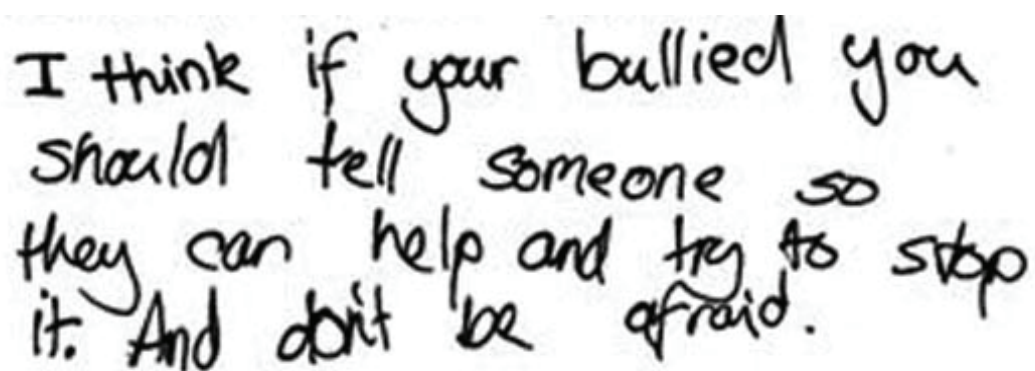 I think if your bullied you
should tell someone so
they can help and try to stop
it. And don't be afraid.